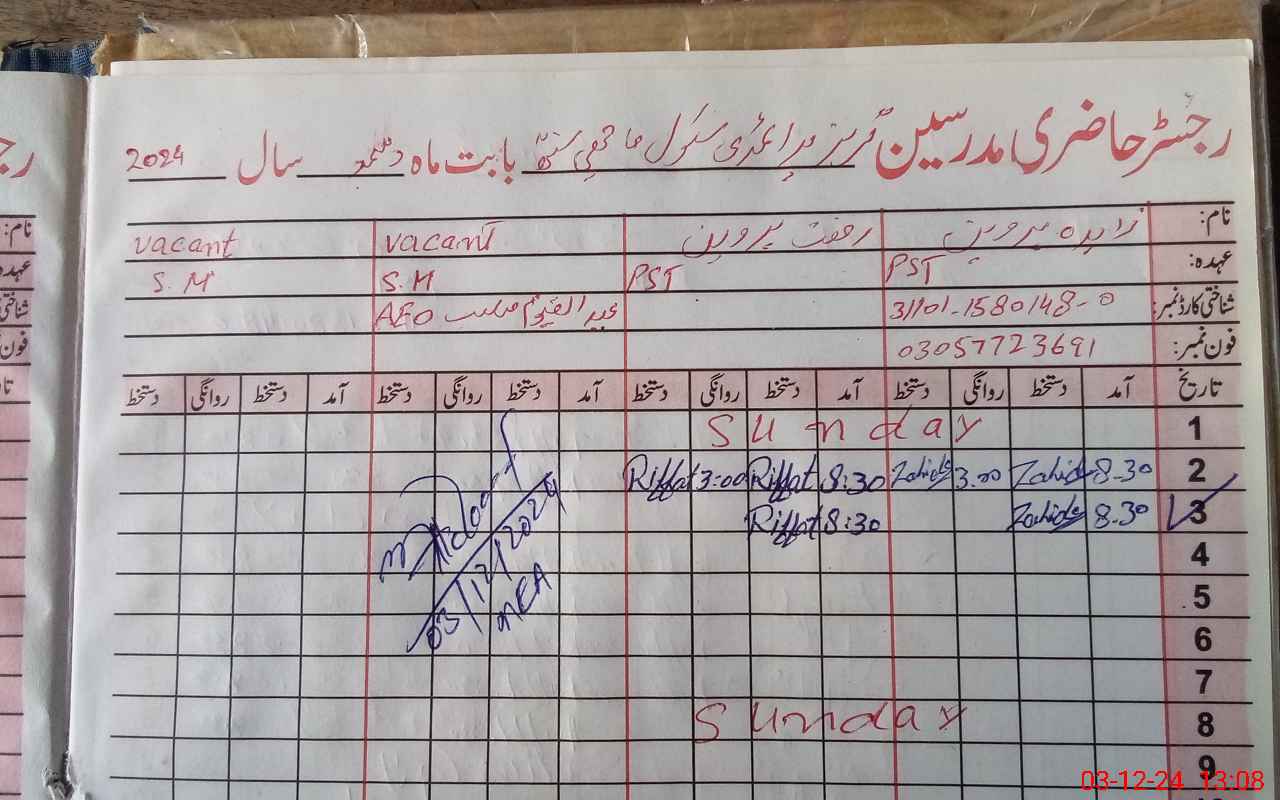 رجسٹر حاضری مدرسین گرلز پرائمری سکول بابت ماہ دسمبر سال 2024
نام: زاہدہ پروین رفعت پروین vacant vacant
عہدہ: PST PST S.M S.M
شناختی کارڈ نمبر: 31101-1580148-0 عبدالقیوم صاحب AEO
فون نمبر: 03057723691
تاریخ آمد دستخط روانگی دستخط آمد دستخط روانگی دستخط آمد دستخط روانگی دستخط آمد دستخط روانگی دستخط
1 Sunday
2 8-30 Zahida 3.00 Zahida 8:30 Riffat 3:00 Riffat
3 8.30 Zahida 8:30 Riffat
4
5
6
7
8 Sunday
9
03/12/2024
MEA
رجـ
نام:
عہدہ
شناختی
فون
تا
03-12-24 13:08